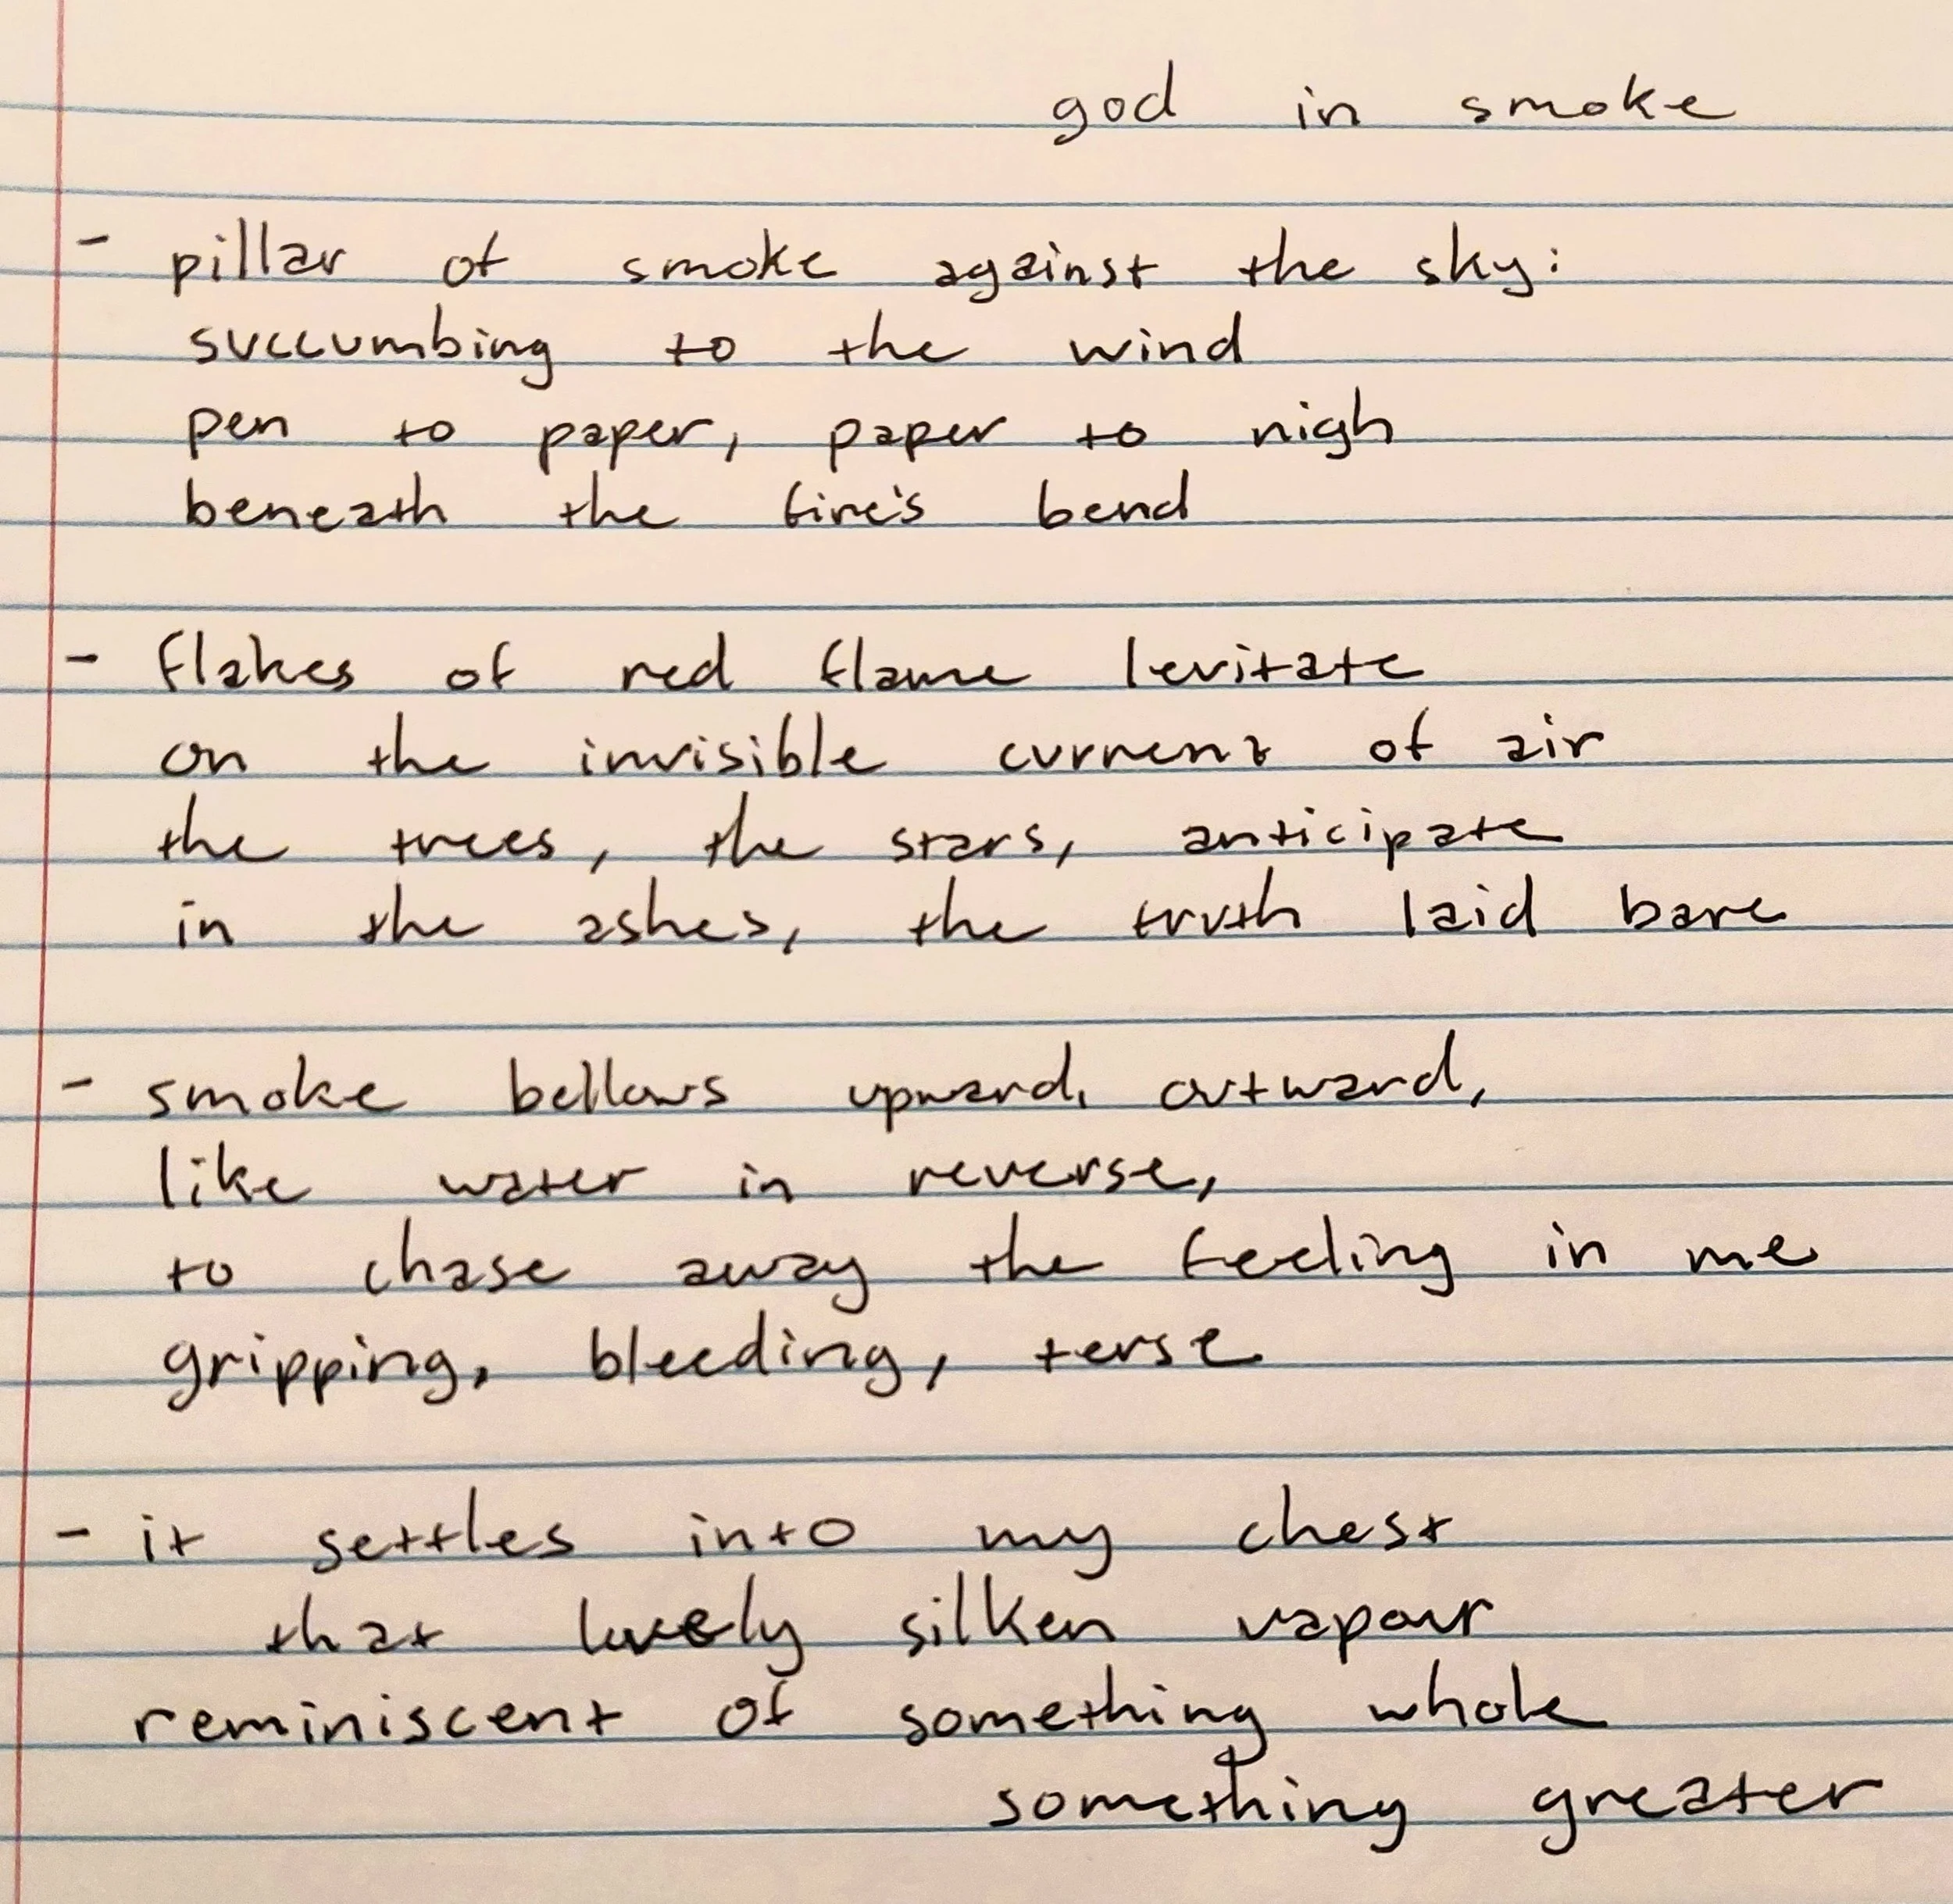 god in smoke
- pillar of smoke against the sky:
succumbing to the wind
pen to paper, paper to nigh
beneath the fire's bend
- flakes of red flame levitate
on the invisible current of air
the trees, the stars, anticipate
in the ashes, the truth laid bare
- smoke bellows upward, outward,
like water in reverse,
to chase away the feeling in me
gripping, bleeding, terse
- it settles into my chest
that lovely silken vapour
reminiscent of something whole
something greater